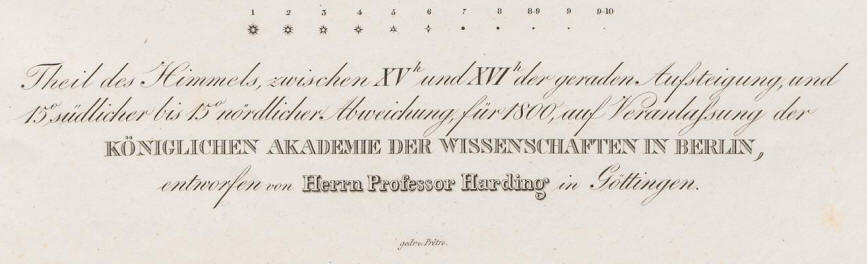 1 2 3 4 5 6 7 8 8·9 9 9·10
Theil des Himmels, zwischen XVh und XVIh der geraden Aufsteigung, und
15° südlicher bis 15° nördlicher Abweichung, für 1800, auf Veranlaſsung der
KÖNIGLICHEN AKADEMIE DER WISSENSCHAFTEN IN BERLIN,
entworfen von Herrn Professor Harding in Göttingen.
gedr. v. Prêtre.